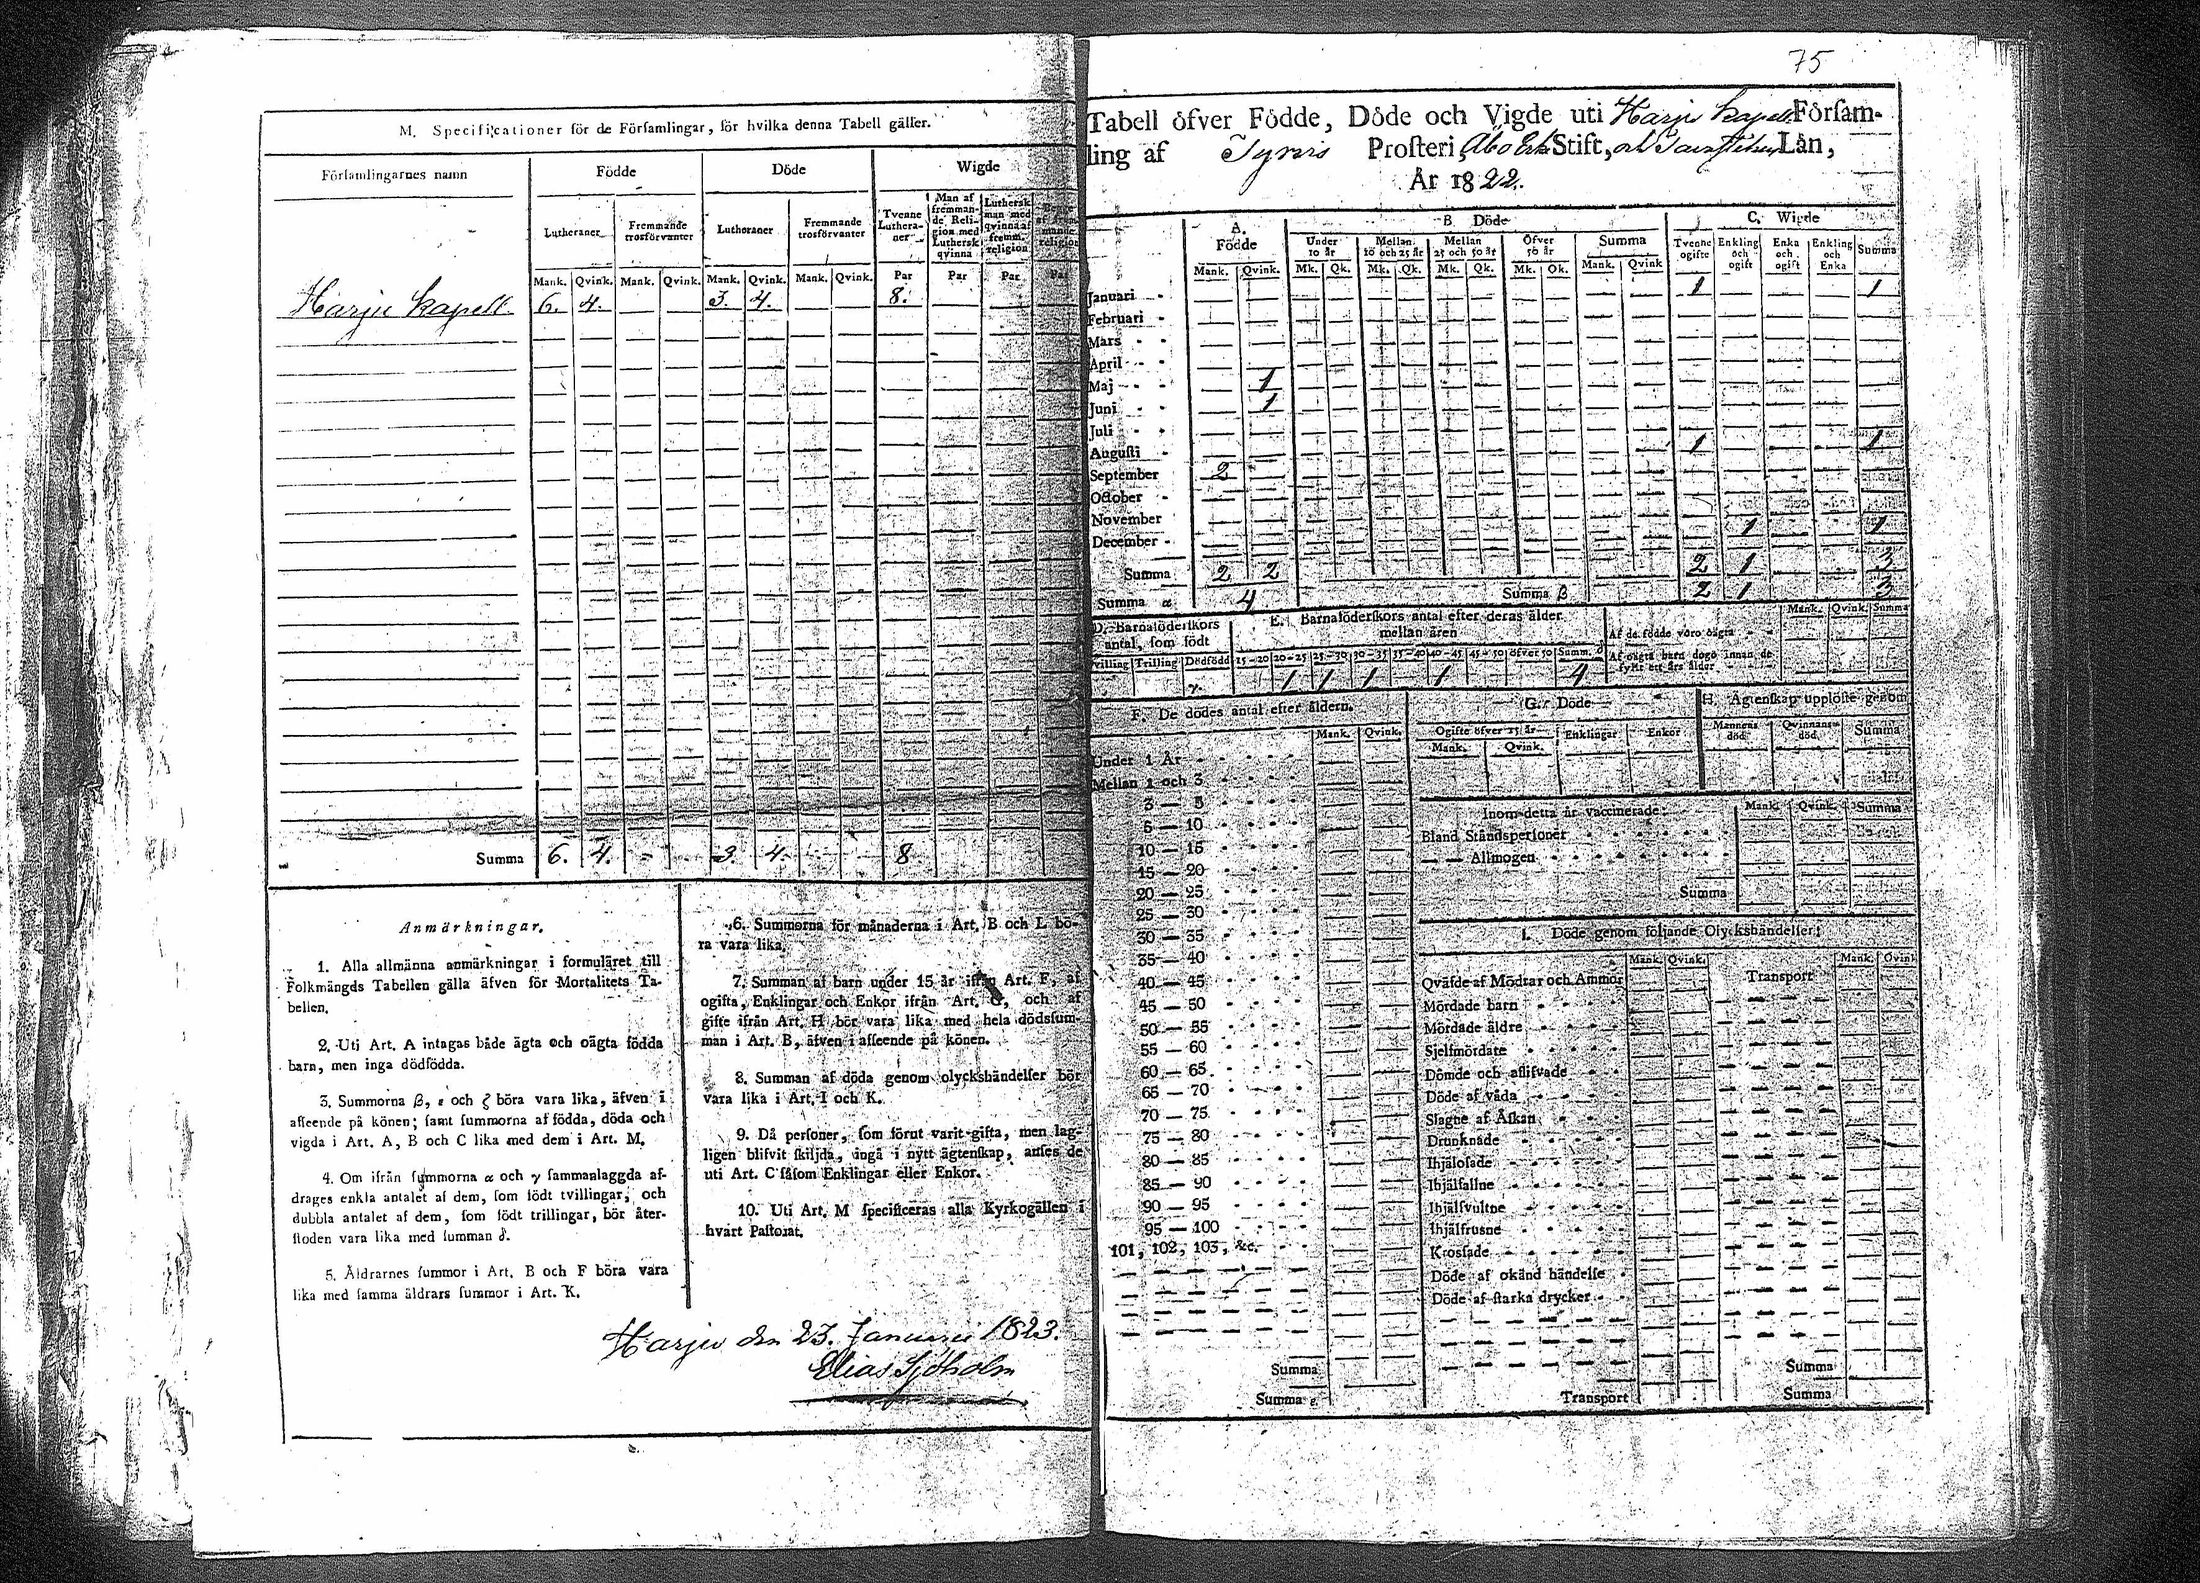 M. Specificationer för de Förſamlingar, för hvilka denna Tabell gäller.
Förſamlingarnes namn
Födde
Döde
Wigde
Lutheraner
Fremmande trosförvanter
Lutheraner
Fremmande trosförvanter
Tvenne Lutheraner
Man af fremmande Religion med Luthersk qvinna
Luthersk man med qvinna af fremm. religion
Mank. Qvink. Mank. Qvink. Mank. Qvink. Mank. Qvink. Par Par Par Par
Harju kapell 6. 4. 3. 4. 8.
Summa 6. 4. 3. 4. 8
Anmärkningar.
1. Alla allmänna anmärkningar i formuläret till
Folkmängds Tabellen gälla äfven för Mortalitets Ta-
bellen.
2. Uti Art. A intagas både ägta och oägta födda
barn, men inga dödfödda.
3. Summorna β, ε och ζ böra vara lika, äfven i
afſeende på könen; ſamt ſummorna af födda, döda och
vigda i Art. A, B och C lika med dem i Art. M.
4. Om ifrån ſummorna α och γ ſammanlaggda af-
drages enkla antalet af dem, ſom födt tvillingar, och
dubbla antalet af dem, ſom födt trillingar, bör åter-
ſtoden vara lika med ſumman δ.
5. Åldrarnes ſummor i Art. B och F böra vara
lika med ſamma åldrars ſummor i Art. K.
6. Summorna för månaderna i Art. B och L bö-
ra vara lika.
7. Summan af barn under 15 år ifrån Art. F, af
ogifta, Enklingar och Enkor ifrån Art. G, och af
gifte ifrån Art. H bör vara lika med hela dödsſum-
man i Art. B, äfven i afſeende på könen.
8. Summan af döda genom olyckshändelſer bör
vara lika i Art. I och K.
9. Då perſoner, ſom förut varit gifta, men lag-
ligen blifvit ſkiljda, ingå i nytt ägtenſkap, anſes de
uti Art. C ſåſom Enklingar eller Enkor.
10. Uti Art. M ſpecificeras alla Kyrkogällen i
hvart Paſtorat.
Harju den 23. Januarii 1823.
Elias Sjöholm
75
Tabell öfver Födde, Döde och Vigde uti Harju kapell Förſam-
ling af Tyrvis Proſteri, Åbo Stift, och Län,
År 1822.
A. Födde
B. Döde
C. Wigde
Under 10 år
Mellan 10 och 25 år
Mellan 25 och 50 år
Öfver 50 år
Summa
Tvenne ogifte
Enkling och ogift
Enka och ogift
Enkling och Enka
Summa
Mank. Qvink. Mk. Qk. Mk. Qk. Mk. Qk. Mk. Qk. Mank. Qvink
Januari 1 1
Februari
Mars
April
Maj 1
Juni 1
Juli
Auguſti 1 1
September 2
October
November 1 1
December
Summa 2 2 2 1 3
Summa α 4 Summa β 2 1 3
D. Barnaföderſkors antal, ſom födt
Tvilling Trilling Dödfödd
γ.
E. Barnaföderſkors antal efter deras ålder mellan åren
15-20 20-25 25-30 30-35 35-40 40-45 45-50 öfver 50 Summ. δ
1 1 1 1 4
Mank. Qvink. Summa
Af de födde voro oägta
Af oägta barn dogo innan de fyllt ett års ålder
F. De dödes antal efter åldern.
Mank. Qvink.
Under 1 År
Mellan 1 och 3
3 — 5
5 — 10
10 — 15
15 — 20
20 — 25
25 — 30
30 — 35
35 — 40
40 — 45
45 — 50
50 — 55
55 — 60
60 — 65
65 — 70
70 — 75
75 — 80
80 — 85
85 — 90
90 — 95
95 — 100
101, 102, 103, &c.
Summa
Summa ε
G. Döde
Ogifte öfver 15 år
Enklingar
Enkor
Mank. Qvink.
H. Ägtenſkap upplöſte genom
Mannens död
Qvinnans död
Summa
Inom detta år vaccinerade:
Mank. Qvink. Summa
Bland Ståndsperſoner
— — Allmogen
Summa
I. Döde genom följande Olyckshändelſer:
Mank. Qvink. Transport Mank. Qvink
Qväfde af Mödrar och Ammor
Mördade barn
Mördade äldre
Sjelfmördare
Dömde och aflifvade
Döde af våda
Slagne af Åſkan
Drunknade
Ihjälofade
Ihjälfallne
Ihjälſvultne
Ihjälfrusne
Krosſade
Döde af okänd händelſe
Döde af ſtarka drycker
Summa
Transport Summa